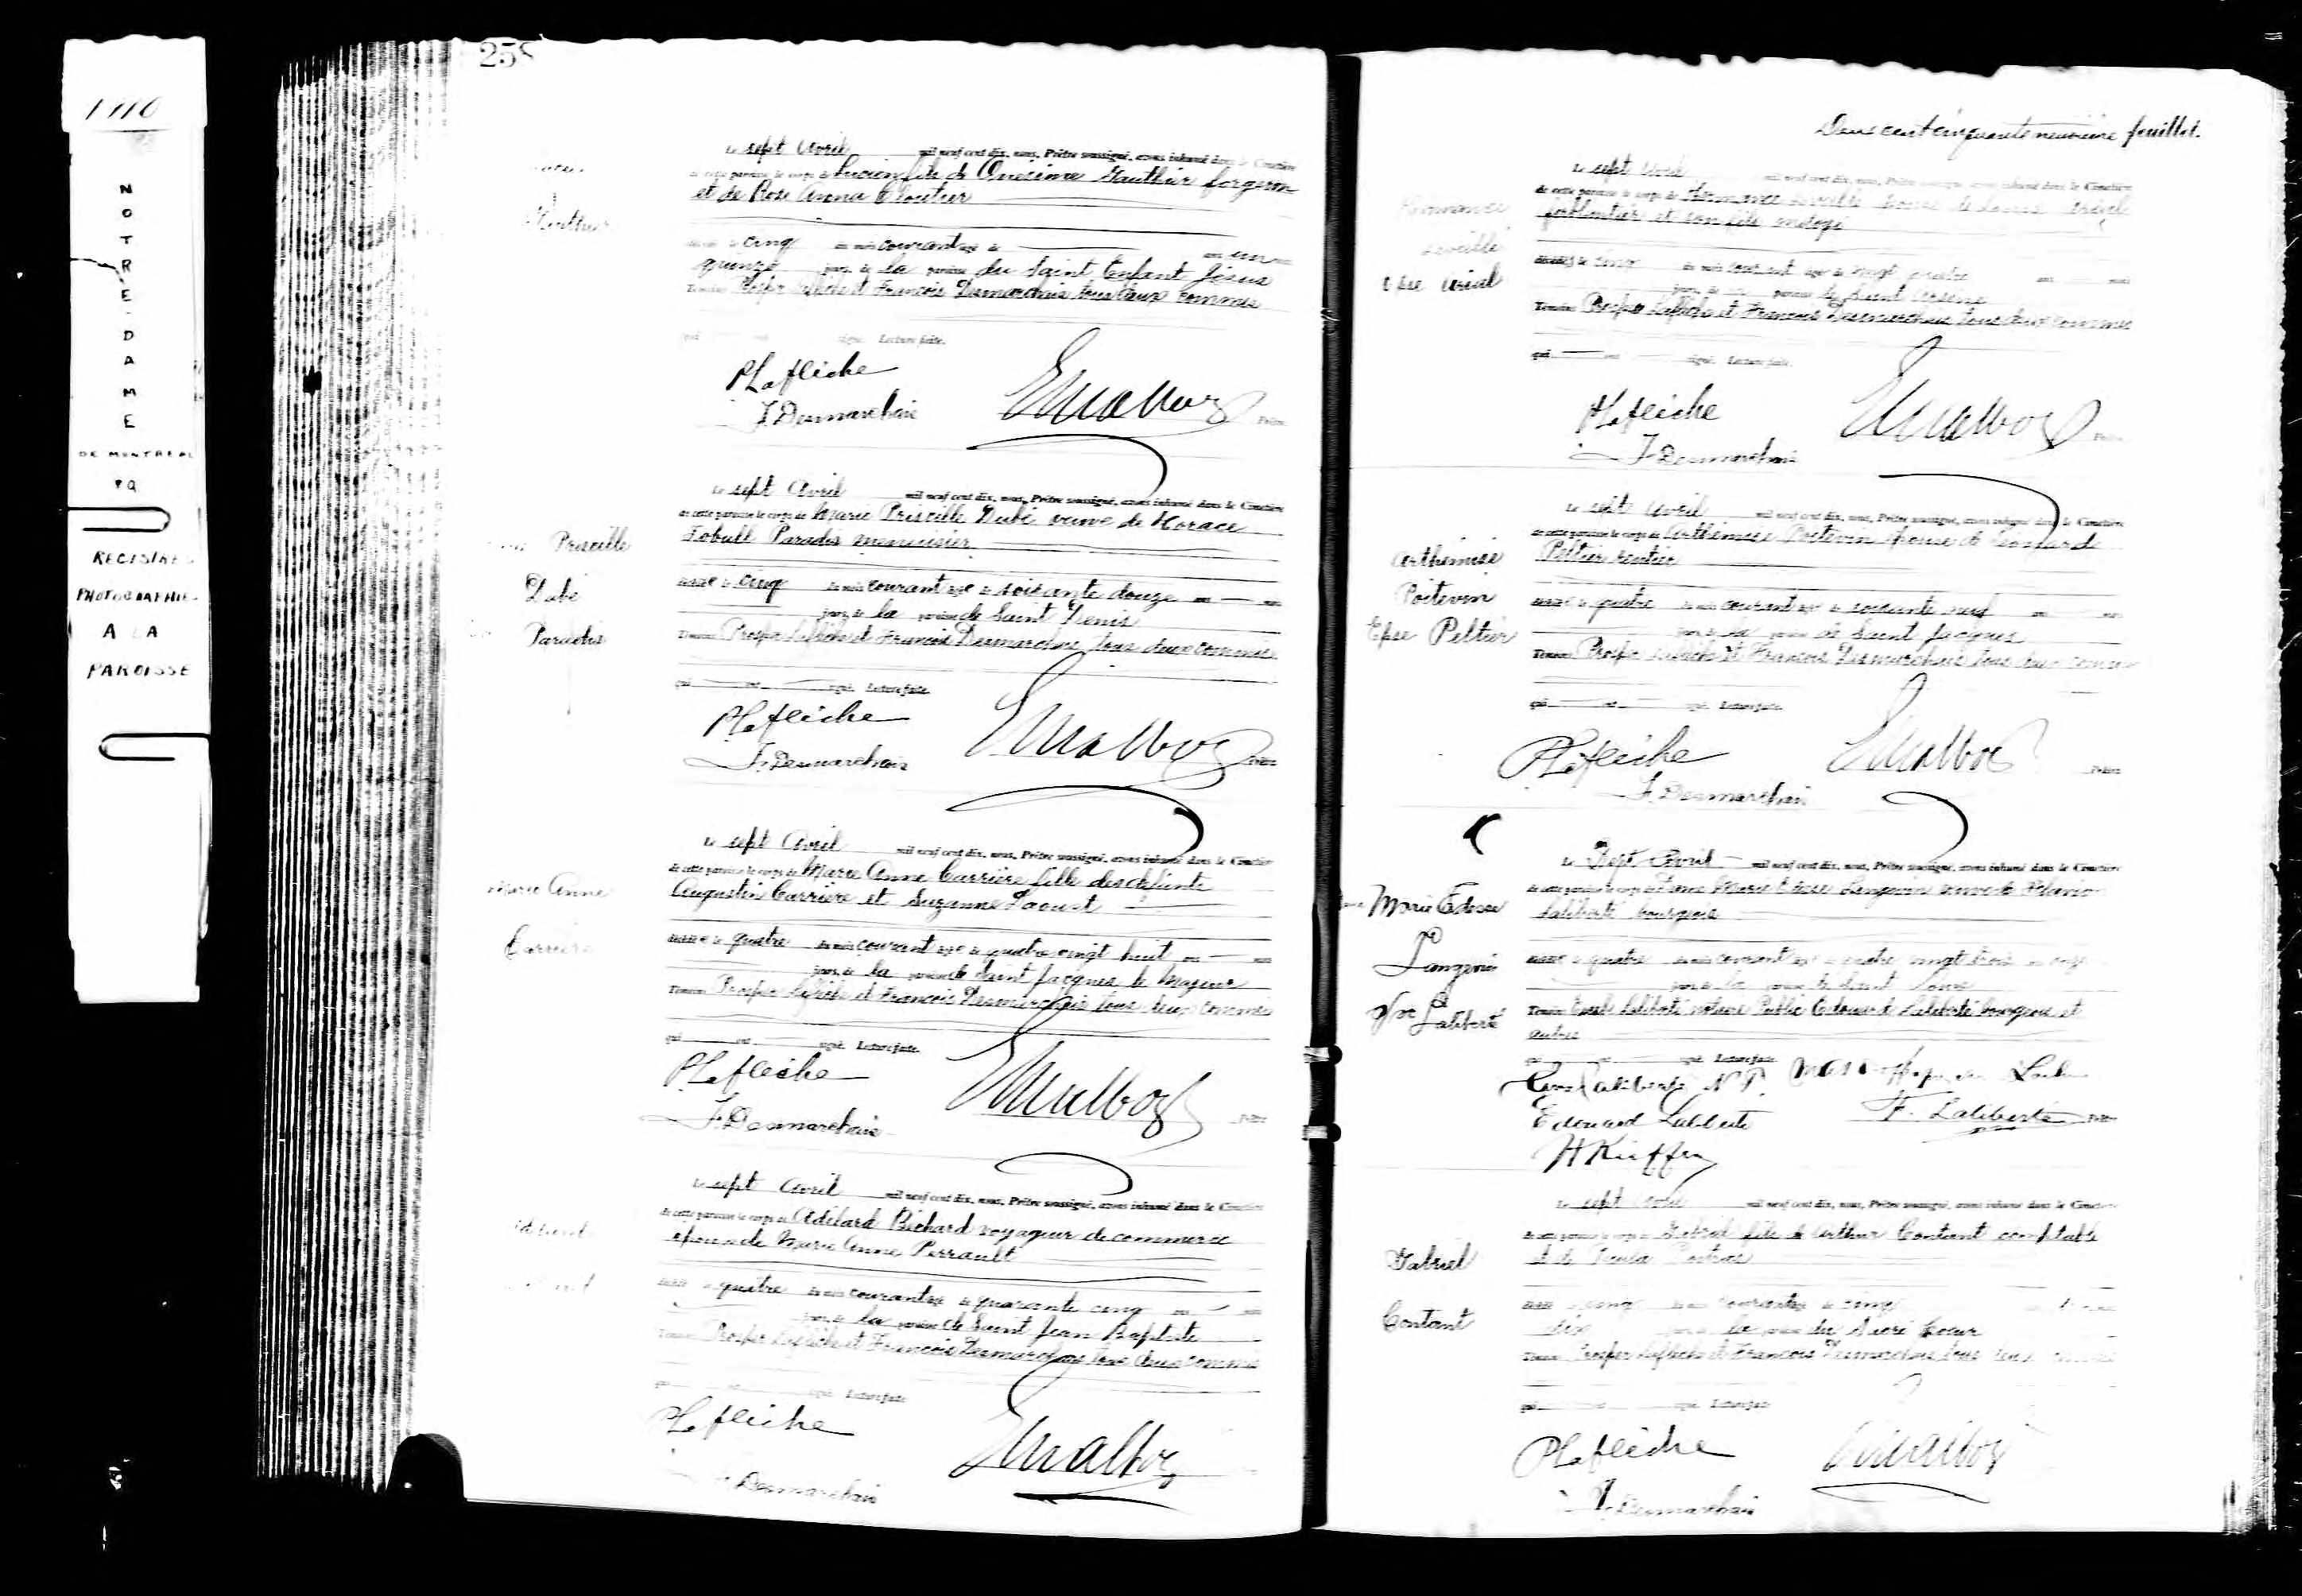 1910
NOTRE-DAME
DE MONTREAL
P Q
REGISTRES
PHOTOGRAPHIES
A LA
PAROISSE
258
Le sept Avril mil neuf cent dix, nous, Prêtre soussigné, avons inhumé dans le Cimetière
de cette paroisse le corps de Lucien fils de Onésime Gauthier forgeron
et de Rose Anna Cloutier
cinq du mois courant âgé de un
quinze jours, de la paroisse du Saint Enfant Jésus
Témoins Prosper Lafleche et Francois Desmarchais tous deux commis
signé. Lecture faite.
PLafleche
F. Desmarchais
Prêtre
Priscille
Dubé
Paradis
Le sept Avril mil neuf cent dix, nous, Prêtre soussigné, avons inhumé dans le Cimetière
de cette paroisse le corps de Marie Priscille Dubé veuve de Horace
Paradis menuisier
le cinq du mois courant âgée de soixante douze ans mois
jours, de la paroisse de Saint Denis
Témoins Prosper Lafleche et Francois Desmarchais tous deux commis
qui ont signé. Lecture faite.
PLafleche
F. Desmarchais
Prêtre
Marie Anne
Carrière
Le sept Avril mil neuf cent dix, nous, Prêtre soussigné, avons inhumé dans le Cimetière
de cette paroisse le corps de Marie Anne Carrière fille des défunts
Augustin Carrière et Suzanne Daoust
le quatre du mois courant âgée de quatre vingt huit ans mois
jours, de la paroisse de Saint Jacques le Majeur
Témoins Prosper Lafleche et Francois Desmarchais tous deux commis
qui ont signé. Lecture faite.
PLafleche
F. Desmarchais
Prêtre
Le sept Avril mil neuf cent dix, nous, Prêtre soussigné, avons inhumé dans le Cimetière
de cette paroisse le corps de Adélard Bichard voyageur de commerce
époux de Marie Anne Perrault
le quatre du mois courant âgé de quarante cinq ans mois
jours, de la paroisse de Saint Jean Baptiste
Témoins Prosper Lafleche et Francois Desmarchais tous deux commis
Lecture faite.
PLafleche
Desmarchais
Deux cent cinquante neuvième feuillet.
Le sept Avril mil neuf cent dix, nous, Prêtre soussigné, avons inhumé dans le Cimetière
de cette paroisse le corps de
ferblantier et son fils ondoyé
le cinq du mois courant âgée de vingt quatre ans mois
jours, de paroisse de Saint Arsène
Témoins Prosper Lafleche et Francois Desmarchais tous deux commis
qui ont signé. Lecture faite.
PLafleche
F. Desmarchais
Prêtre
Arthémise
Poitevin
Epse Peltier
Le sept Avril mil neuf cent dix, nous, Prêtre soussigné, avons inhumé dans le Cimetière
de cette paroisse le corps de Arthémise Poitevin épouse de Leonard
Peltier rentier
le quatre du mois courant âgée de soixante neuf ans mois
jours, de la paroisse de Saint Jacques
Témoins Prosper Lafleche et Francois Desmarchais tous deux commis
qui ont signé. Lecture faite.
PLafleche
F. Desmarchais
Prêtre
Marie Edesse
Langevin
Laliberté
Le Sept Avril mil neuf cent dix, nous, Prêtre soussigné, avons inhumé dans le Cimetière
de cette paroisse le corps de Dame Marie Edesse Langevin veuve de
Laliberté bourgeois
le quatre du mois courant âgée de quatre vingt trois ans onze
jours, de la paroisse de Saint Louis
Témoins Laliberté notaire Public Edouard Laliberté bourgeois et
autres
qui ont signé. Lecture faite.
Laliberté N.P.
Edouard Laliberté
F. Laliberté
Prêtre
H Kieffer
Gabriel
Contant
Le sept Avril mil neuf cent dix, nous, Prêtre soussigné, avons inhumé dans le Cimetière
de cette paroisse le corps de Gabriel fils de Arthur Contant comptable
et de
cinq du mois courant âgé de cinq
dix jours, de la paroisse du Sacré Coeur
Témoins Prosper Lafleche et Francois Desmarchais tous deux commis
qui ont signé. Lecture faite
PLafleche
F. Desmarchais